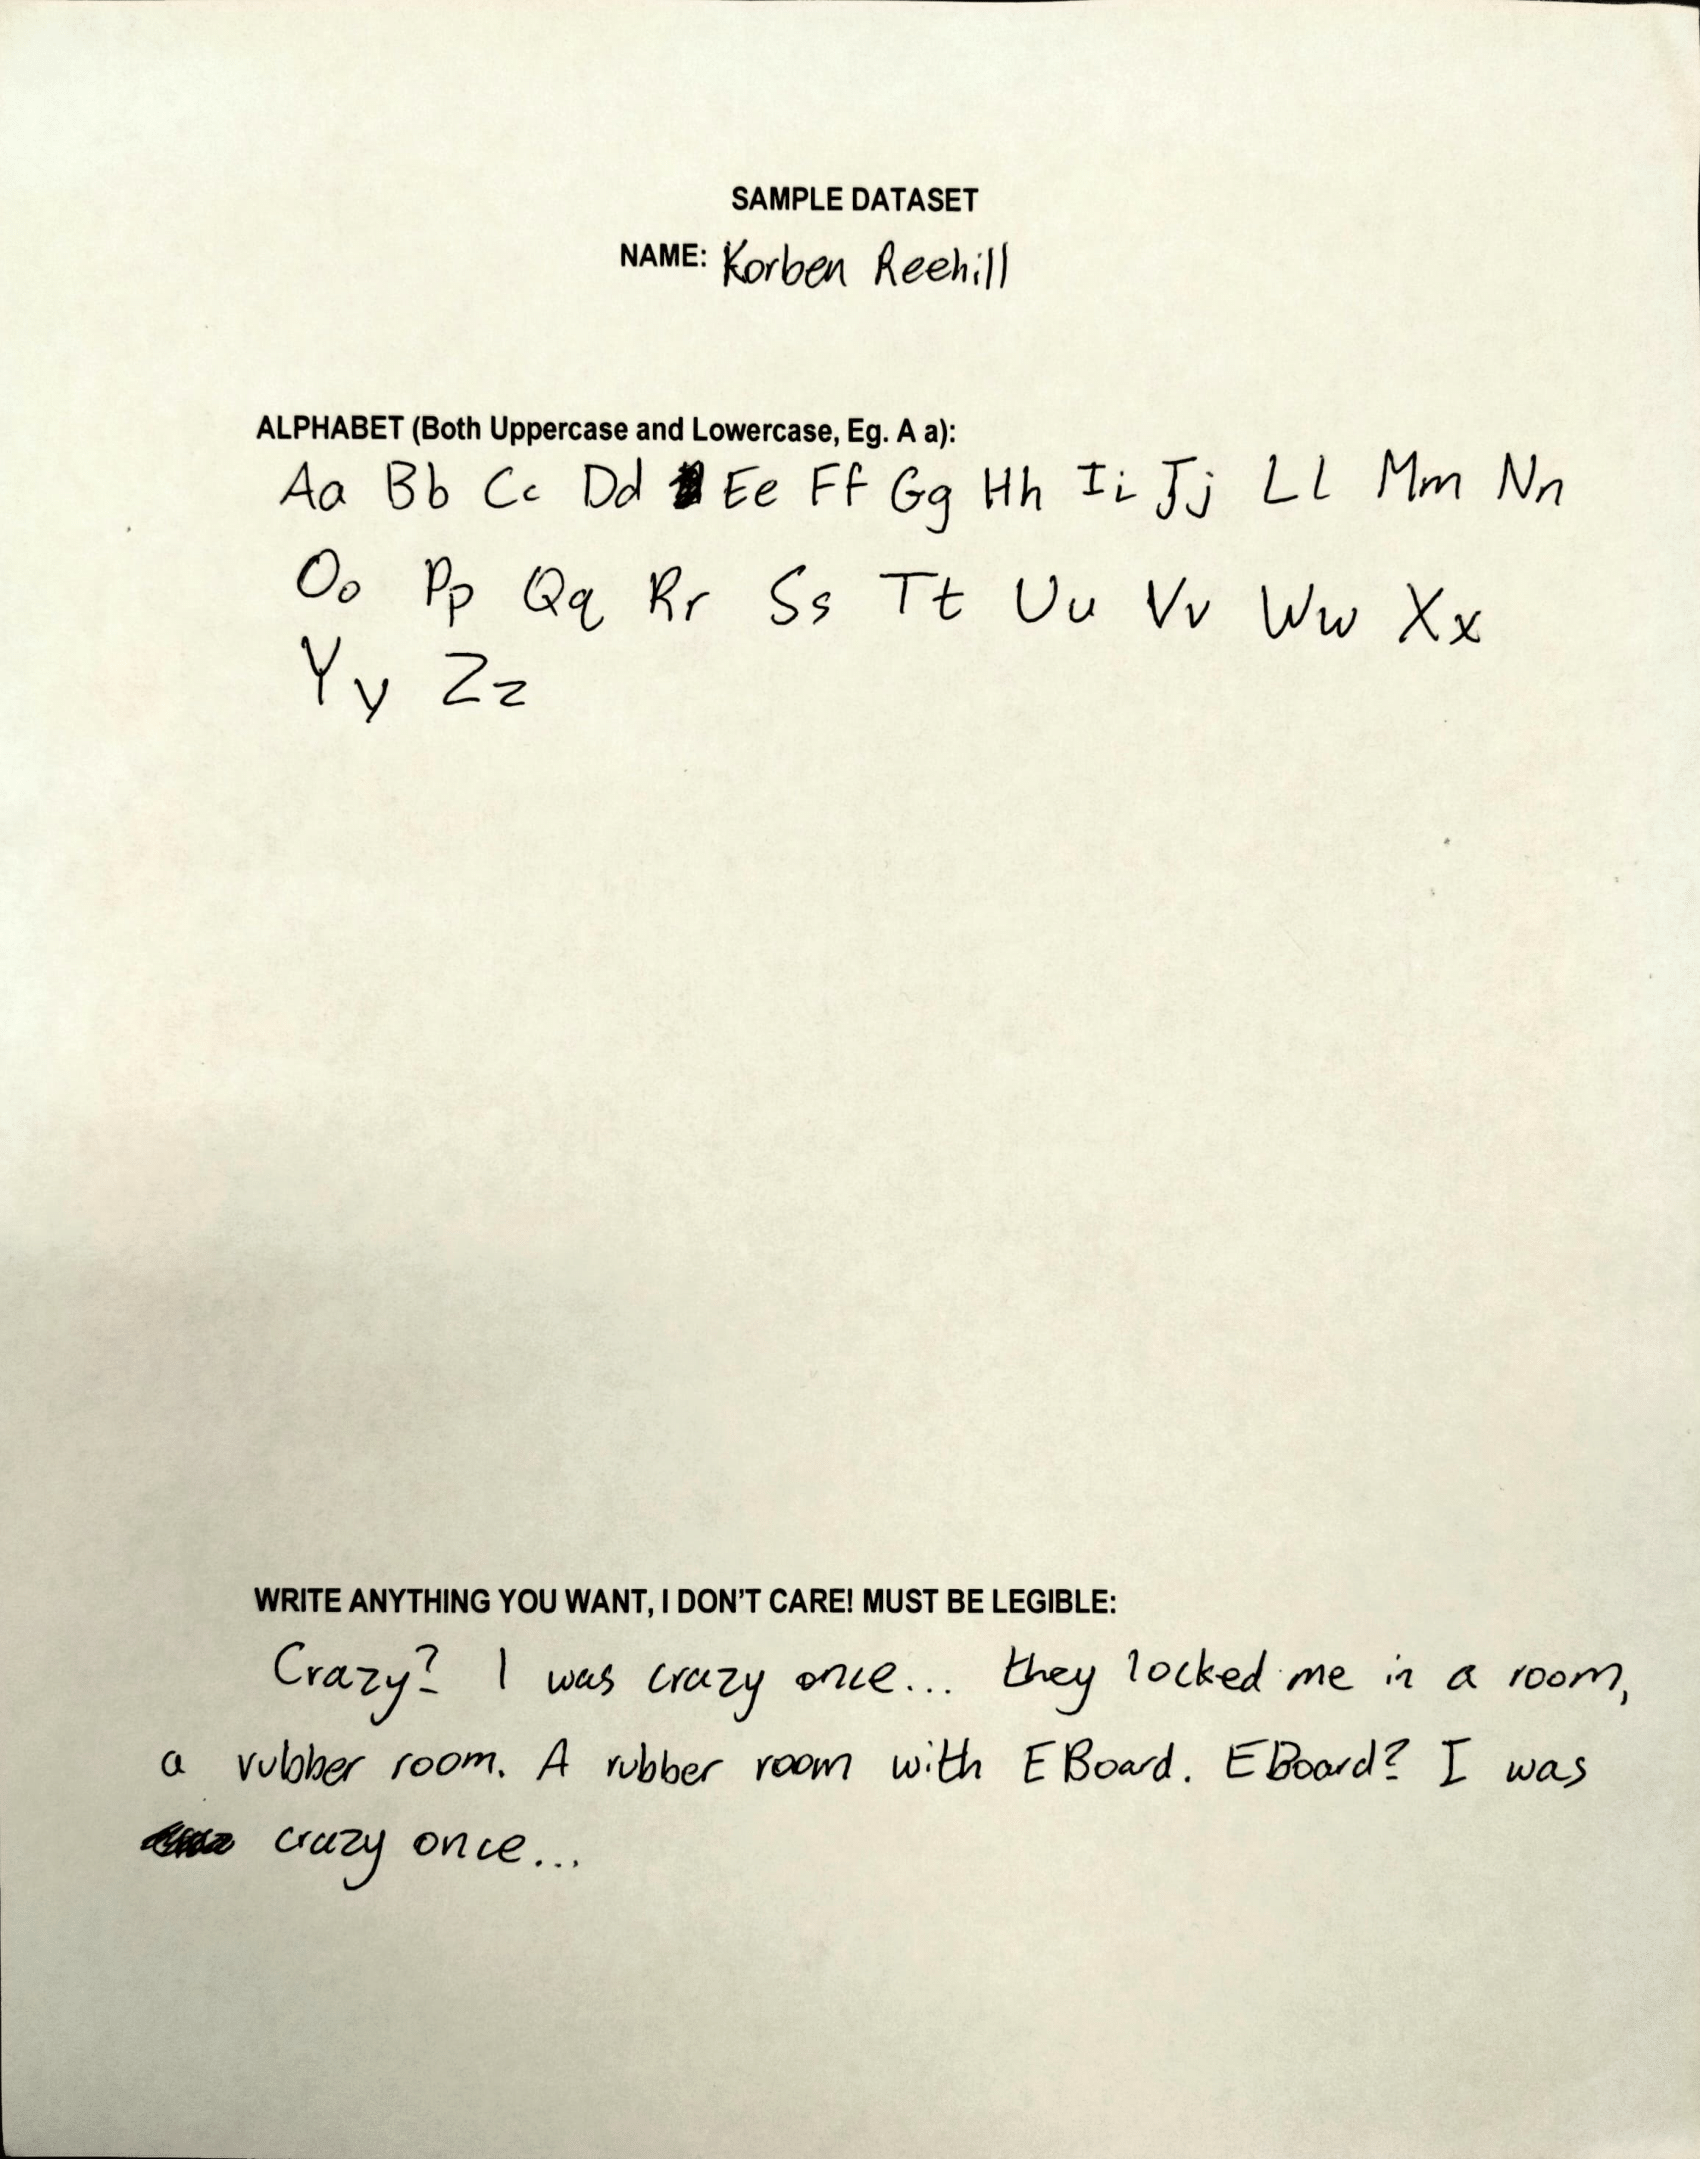 SAMPLE DATASET
NAME: Korben Reehill
ALPHABET (Both Uppercase and Lowercase, Eg. A a):
Aa Bb Cc Dd Ee Ff Gg Hh Ii Jj Ll Mm Nn
Oo Pp Qq Rr Ss Tt Uu Vv Ww Xx
Yy Zz
WRITE ANYTHING YOU WANT, I DON'T CARE! MUST BE LEGIBLE:
Crazy? I was crazy once... they locked me in a room,
a rubber room. A rubber room with EBoard. EBoard? I was
crazy once...